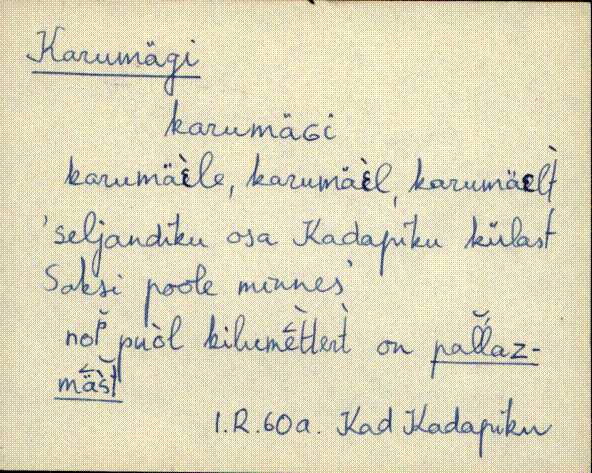 Karumägi
karumäGi
karumäèle, karumäèl, karumäelt̀
'seljandiku osa Kadapiku külast
Saksi poole minnes'
puòl kilumèttert̀ on pallaz-
mäst
I.R.60a. Kad Kadapiku